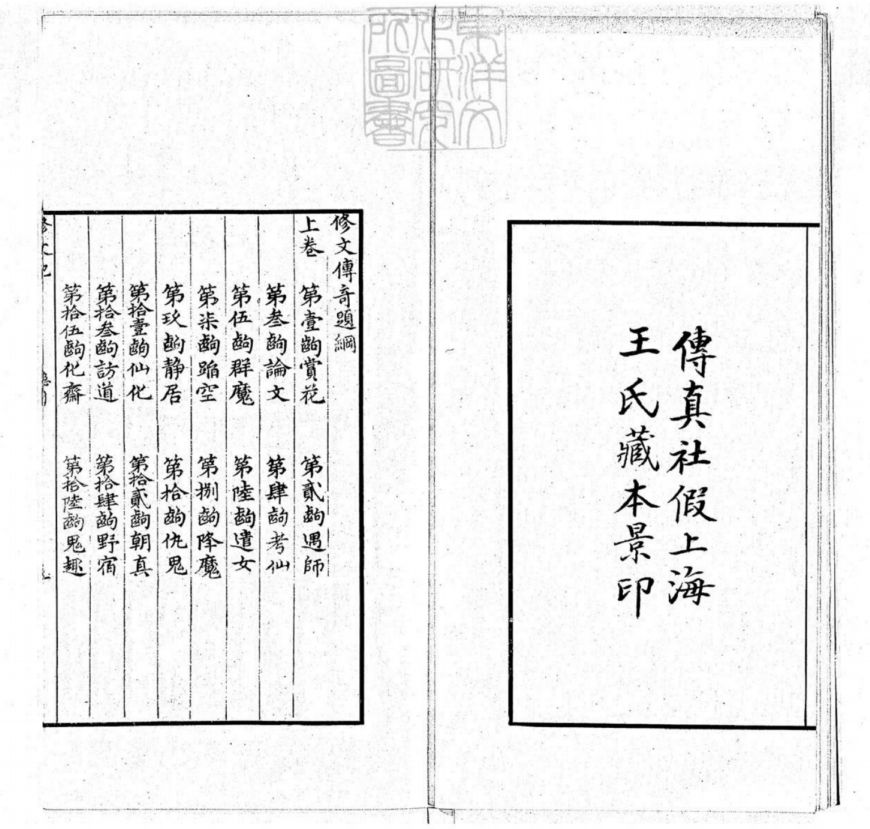 東洋文
化研究
所圖書
傳真社假上海
王氏藏本景印
修文傳奇題綱
上卷 第壹齣賞花 第貳齣遇師
第叁齣論文 第肆齣考仙
第伍齣群魔 第陸齣遣女
第柒齣蹈空 第捌齣降魔
第玖齣静居 第拾齣仇鬼
第拾壹齣仙化 第拾貳齣朝真
第拾叁齣訪道 第拾肆齣野宿
第拾伍齣化齋 第拾陸齣鬼趣